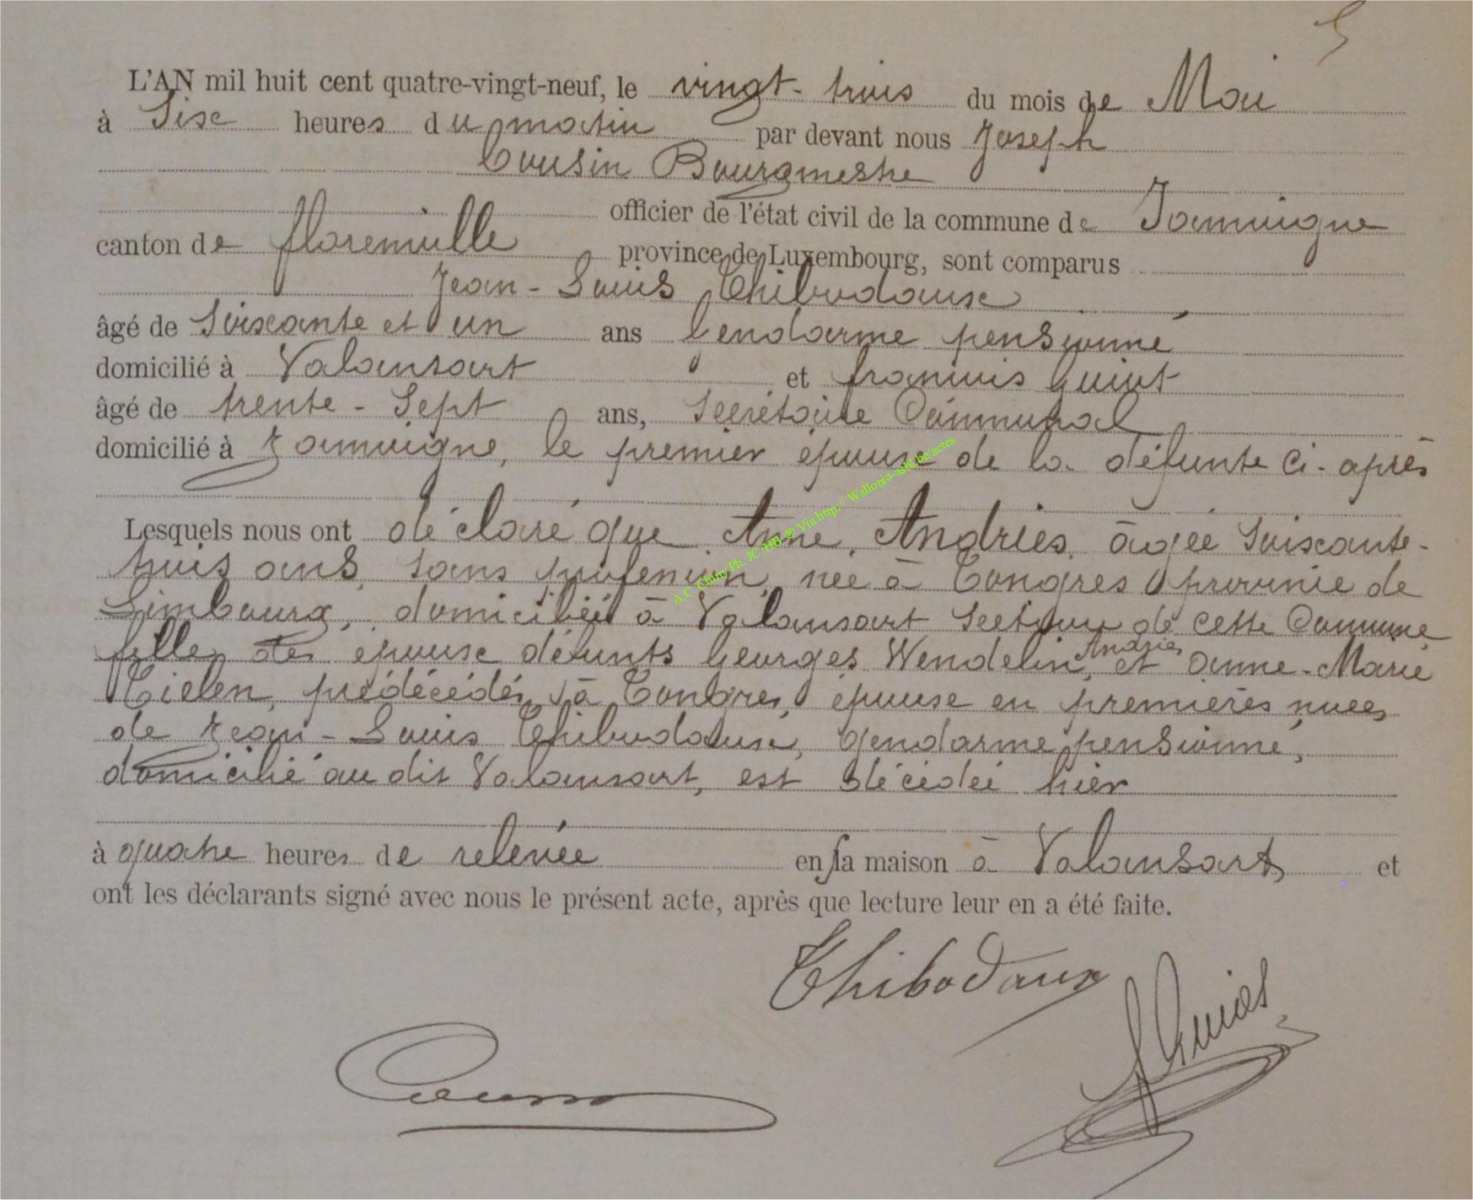 L'AN mil huit cent quatre-vingt-neuf, le vingt-trois du mois de Mai
à Six heures du matin par devant nous Joseph
Cousin Bourgmestre
officier de l'état civil de la commune de Jamoigne
canton de florenville province de Luxembourg, sont comparus
Jean-Louis Thibodaux
âgé de Soixante et un ans Gendarme pensionné
domicilié à Valansart et françois
âgé de trente-Sept ans, Secrétaire Communal
domicilié à Jamoigne, le premier épouse de la défunte ci-après
Lesquels nous ont déclaré que Anne Andries, âgée Soixante-
trois ans, sans profession, née à Tongres province de
Limbourg, domiciliée à Valansart Section de cette Commune
fille des épouse défunts Georges Wendelin Andries et Anne-Marie
Cielen, prédécédés à Tongres, épouse en premières noces
de Jean-Louis Thibodaux, Gendarme pensionné,
domicilié au dit Valansart, est décédée hier
à quatre heures de relevée en sa maison à Valansart et
ont les déclarants signé avec nous le présent acte, après que lecture leur en a été faite.
Thibodaux
Cousin